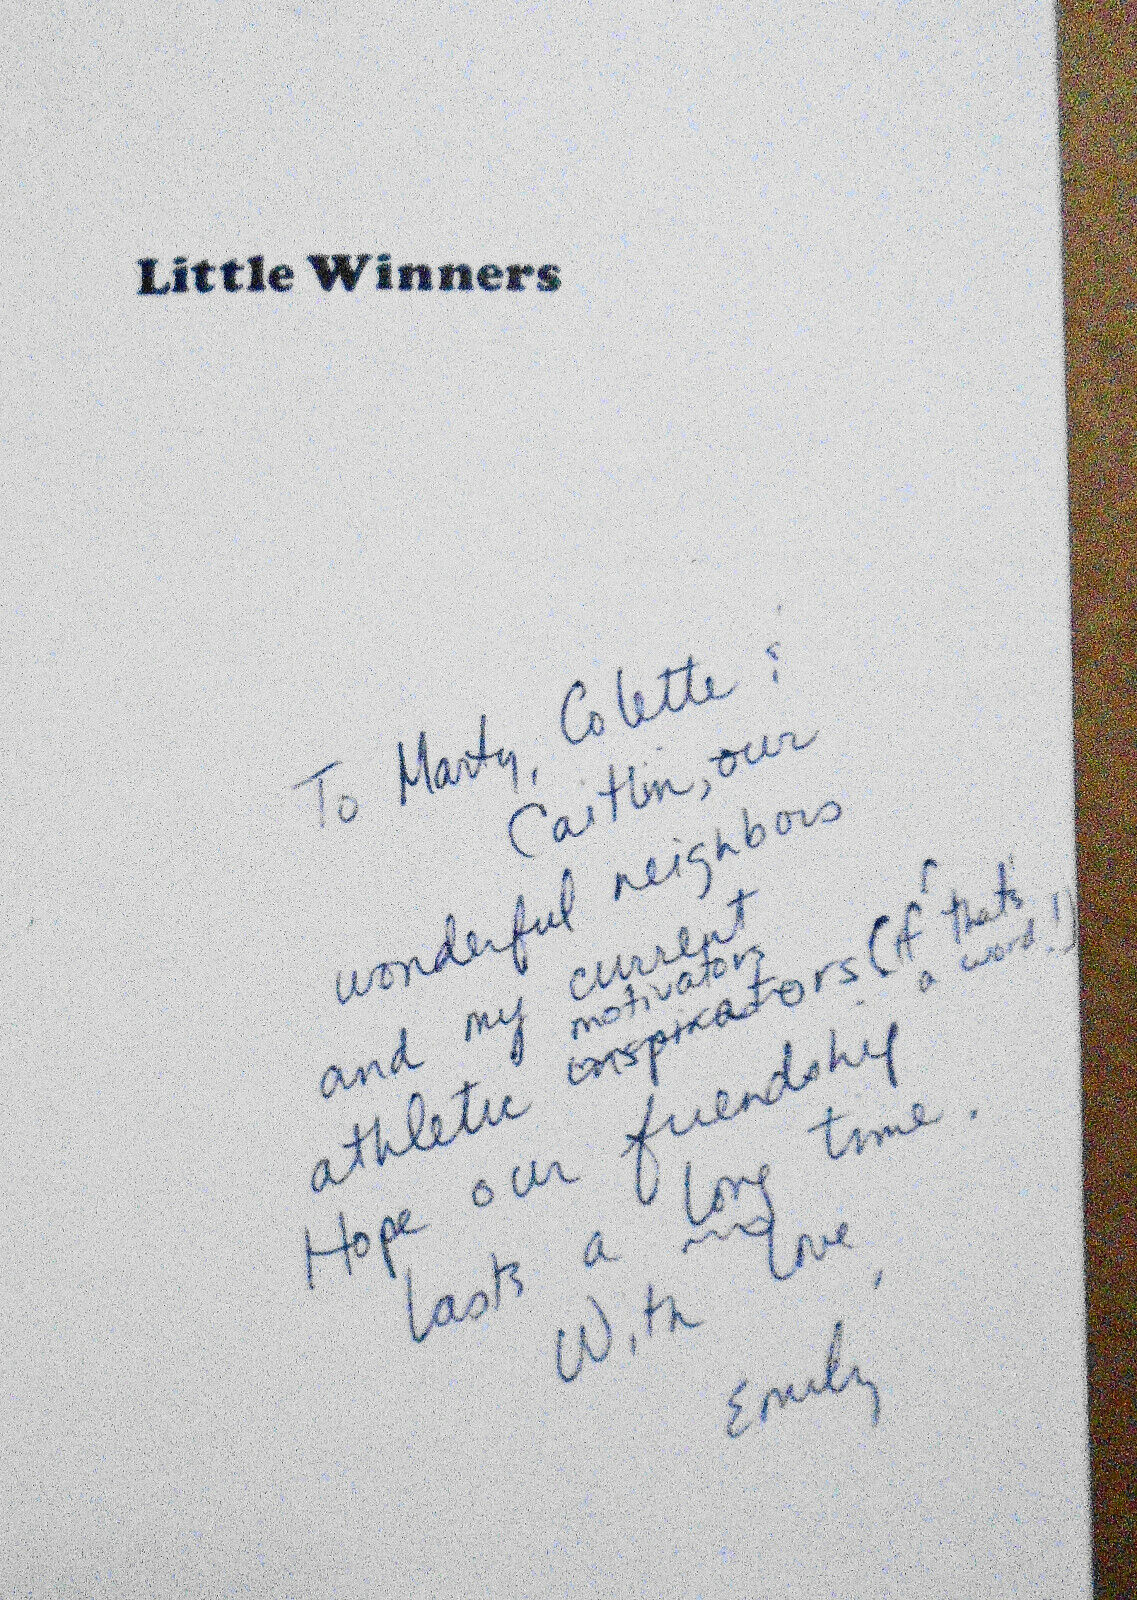 Little Winners
To Marty, Colette &
Caitlin, our
wonderful neighbors
and my current
motivators
athletic inspirators (if that's
a word!)
Hope our friendship
lasts a long time.
With love,
Emily